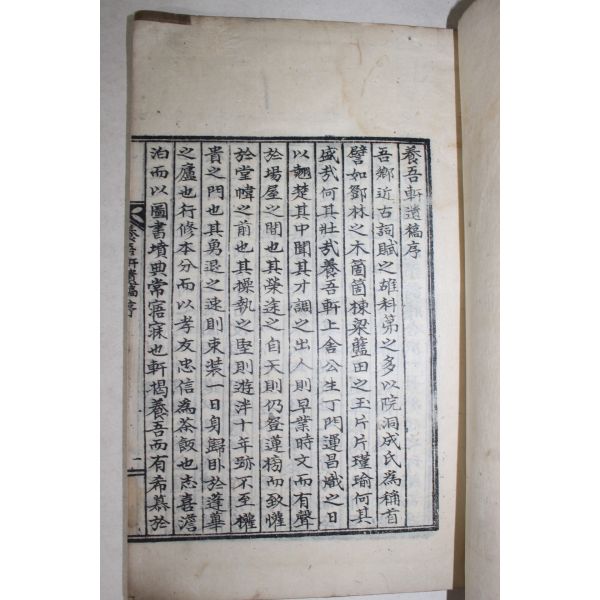 養吾軒遺稿序
吾鄉近古詞賦之雄科第之多以院洞成氏為稱首
譬如鄧林之木箇箇棟梁藍田之玉片片瑾瑜何其
盛哉何其壯哉養吾軒上舍公生丁門運昌熾之日
以翹楚其中聞其才調之出人則早業時文而有聲
於場屋之間也其榮途之自天則仍登蓮榜而致懽
於堂幃之前也其操執之堅則遊泮十年跡不至權
貴之門也其勇退之速則束裝一日身歸卧於蓬蓽
之廬也行修本分而以孝友忠信為茶飯也志喜澹
泊而以圖書墳典常寤寐也軒揭養吾而有希慕於
養吾軒遺稿序
一